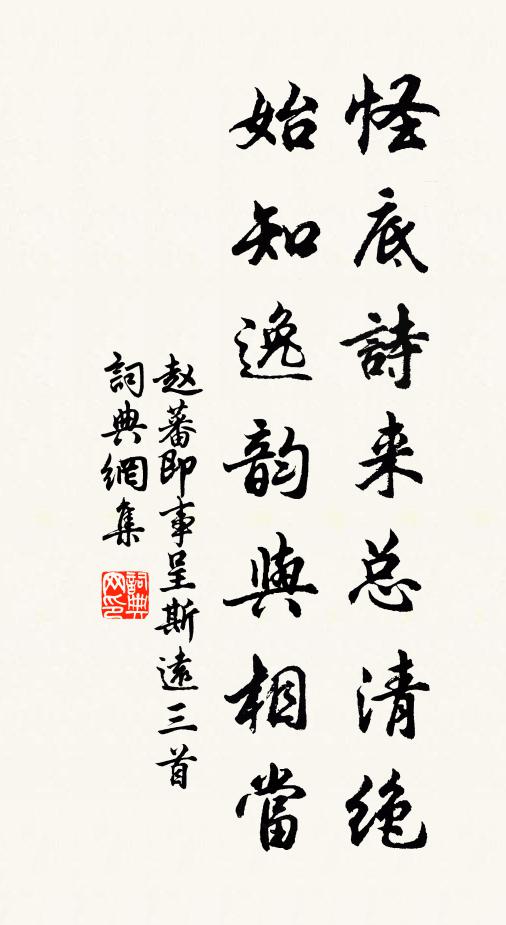 怪底詩来总清绝
始知逸韵與相當
赵蕃即事呈斯遠三首
詞典網集
詞典网印